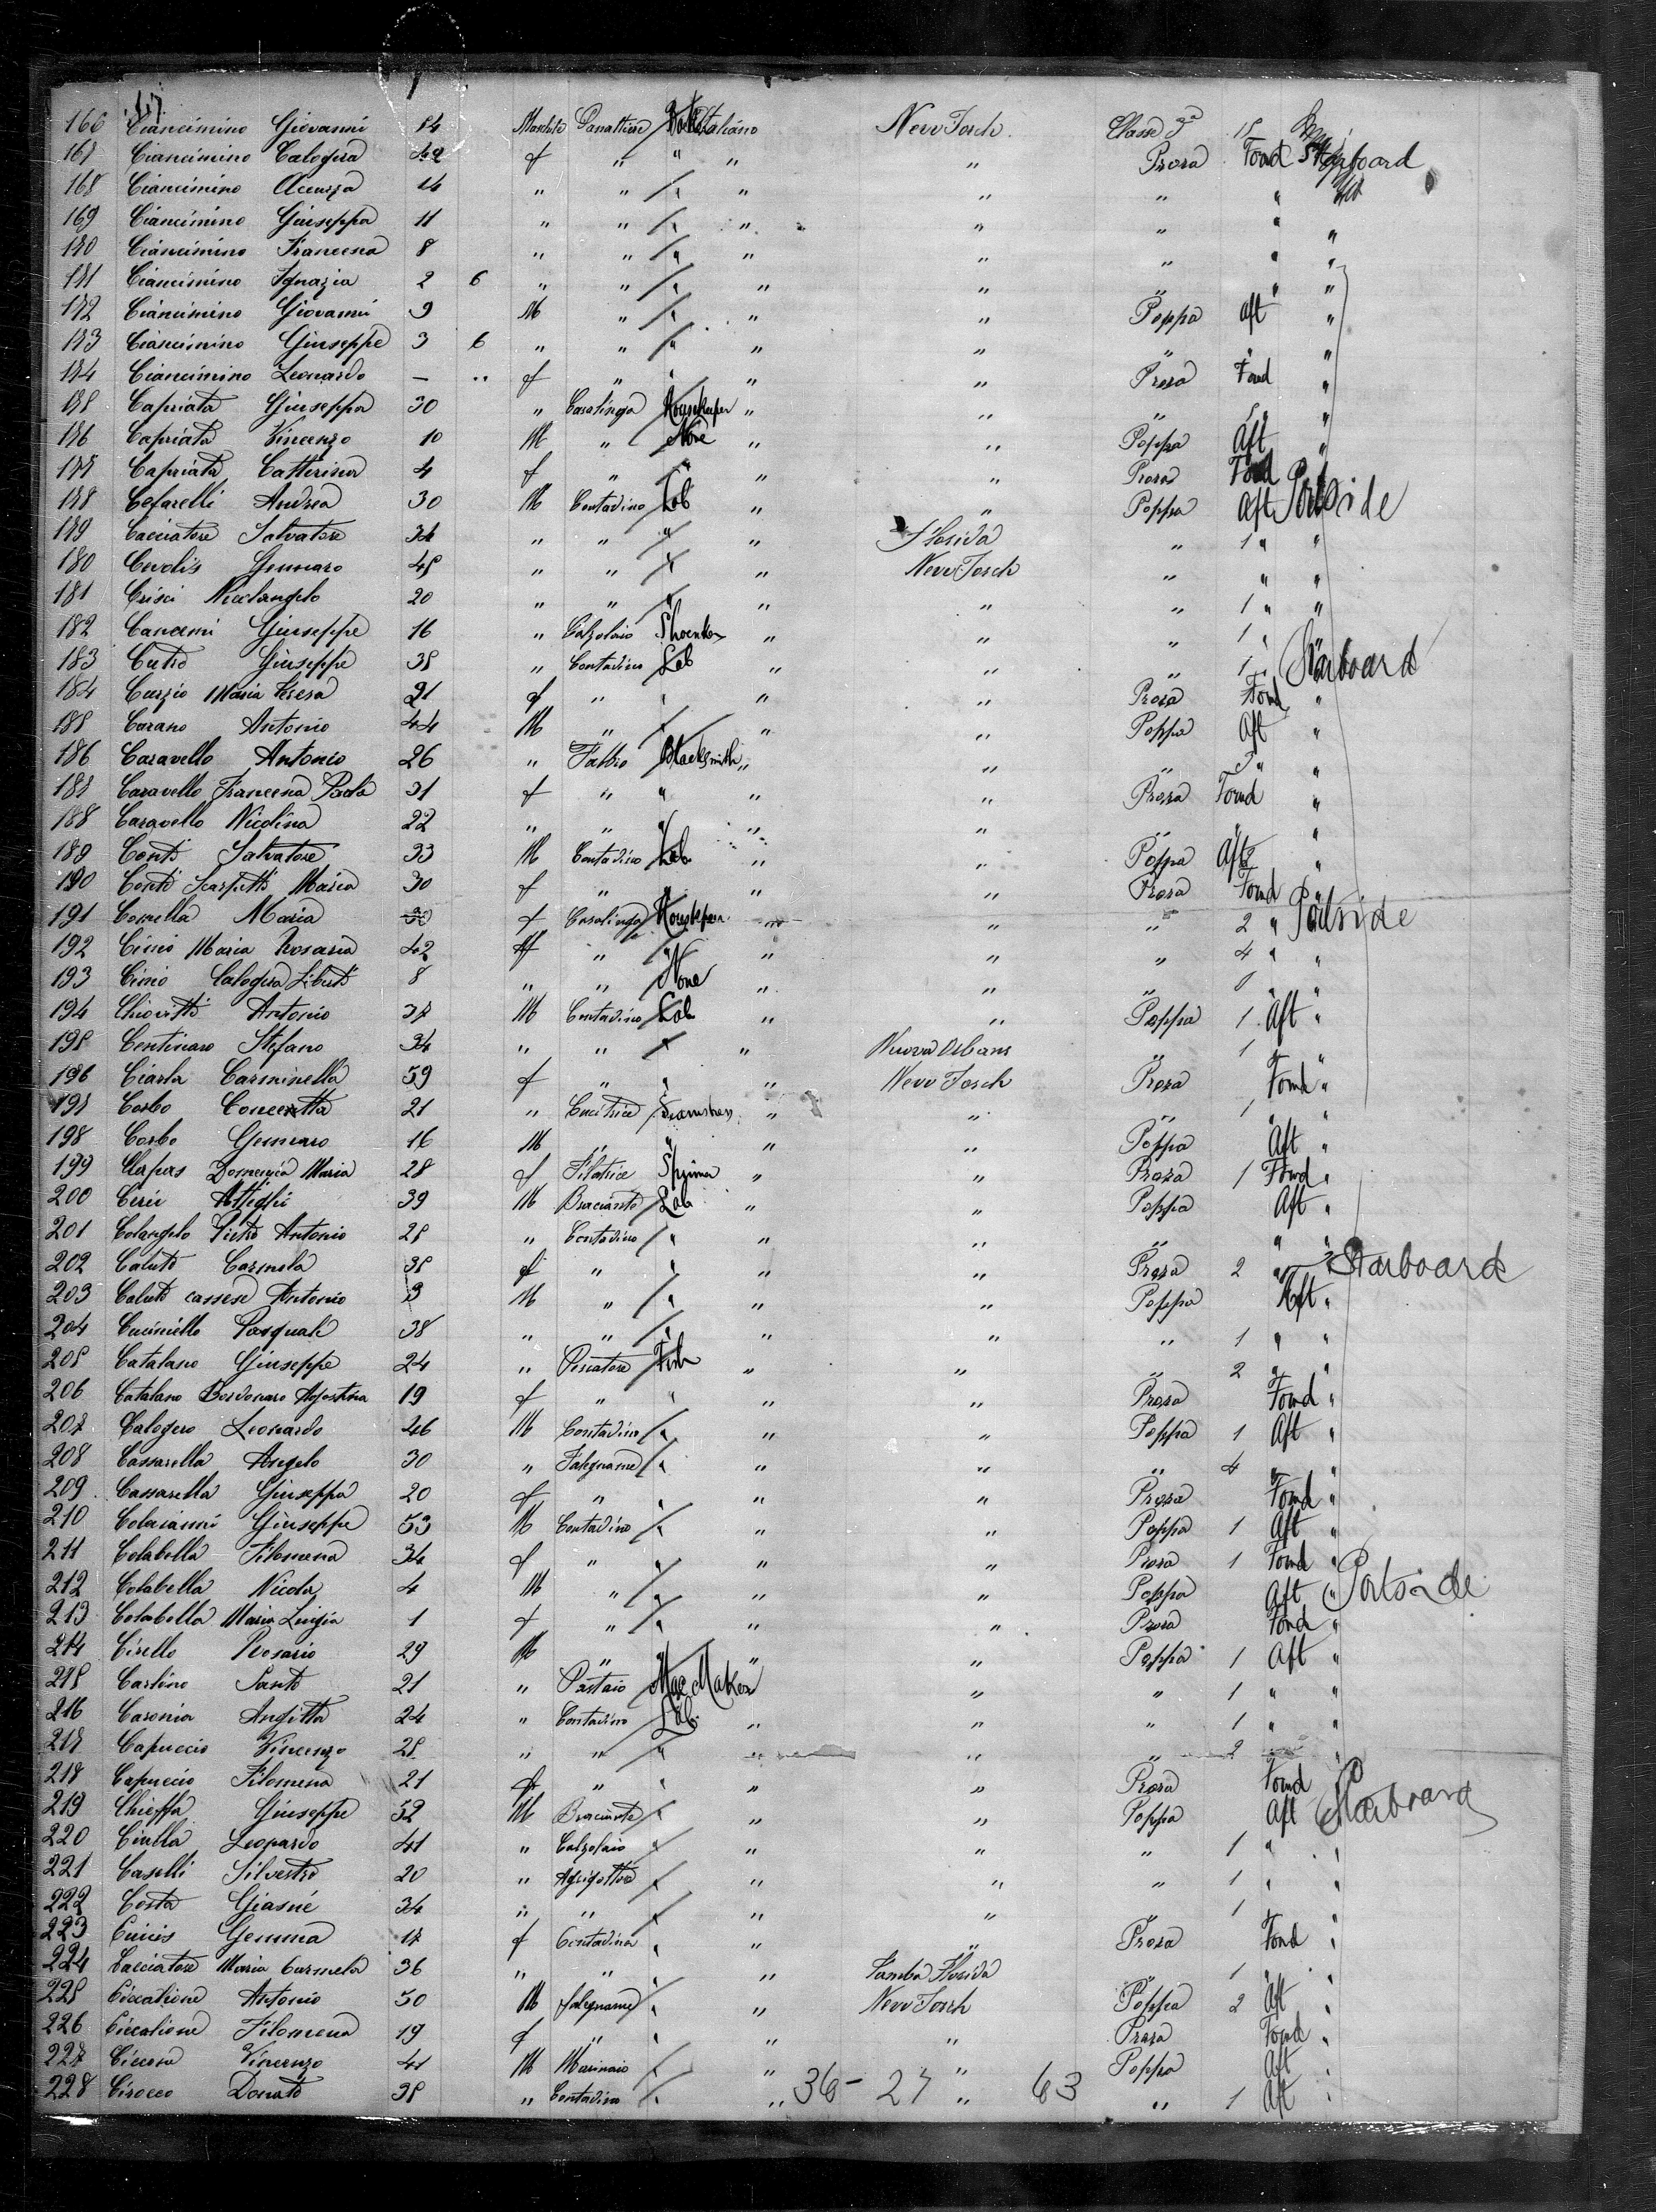 166 Ciancimino Giovanni 14 Maschio Panattiere Italiano New Jorch Classe 3a 15
167 Ciancimino Calogera 42 f " " " " Prora Forwd Starboard
168 Ciancimino Accursa 14 " " " " " " " "
169 Ciancimino Giuseppa 11 " " " " " " " "
170 Ciancimino Francesca 8 " " " " " " " "
171 Ciancimino Ignazia 2 6 " " " " " " " "
172 Ciancimino Giovanni 9 M " " " " Poppa aft "
173 Ciancimino Giuseppe 3 6 " " " " " " " "
174 Ciancimino Leonardo — " f " " " " Prora Forwd "
175 Capriata Giuseppa 30 " Casalinga Housekeeper " " " "
176 Capriata Vincenzo 10 M " None " " Poppa Aft "
177 Capriata Catterina 4 f " " " " Prora Forwd
178 Cefarelli Andrea 30 M Contadino Lab " " Poppa Aft Portside
179 Cacciatore Salvatore 34 " " " " Florida " 1 " "
180 Cevolis Gennaro 45 " " " " New Jorch " " "
181 Crisci Nicolangelo 20 " " " " " " 1 " "
182 Cancemi Giuseppe 16 " Calzolaio Shoemker " " " 1 "
183 Cutro Giuseppe 35 " Contadino Lab " " " 1 " Starboard
184 Curzio Maria Teresa 21 f " " " " Prora Forwd "
185 Carano Antonio 44 M " " " " Poppa Aft "
186 Caravello Antonio 26 " Fabbro Blacksmith " " " 3 " "
187 Caravello Francesca Paola 31 f " " " " Prora Forwd "
188 Caravello Nicolina 22 " " " " " " " "
189 Conti Salvatore 33 M Contadino Lab " " Poppa Aft 2 "
190 Conti Scarpitti Maria 30 f " " " Prora Forwd "
191 Comella Maria 30 f Casalinga Housekeeper " " " 2 " Portside
192 Cinio Maria Rosaria 42 f " " " " " 4 " "
193 Cinio Calogera 8 " " None " " " " "
194 Chiovitti Antonio 37 M Contadino Lab " " Poppa 1 Aft "
195 Centinaro Stefano 34 " " " " Nuova Orleans " 1 " "
196 Ciarla Carminella 59 f " " " New Jorch Prora Forwd "
197 Corbo Concetta 21 " Cucitrice Seamstress " " " 1 " "
198 Corbo Gennaro 16 M " " " " Poppa Aft "
199 Clapas Domenica Maria 28 f Filatrice Spinner " " Prora 1 Forwd "
200 Cireu 39 M Bracciante Lab " " Poppa Aft "
201 Colangelo Pietro Antonio 25 " Contadino " " " " " "
202 Caluti Carmela 35 f " " " " Prora 2 " Starboard
203 Caluti cassese Antonio 3 M " " " " Poppa Aft "
204 Cuciniello Pasquale 38 " " " " " " 1 " "
205 Catalano Giuseppe 24 " Pescatore Fish " " " 2 " "
206 Catalano Bordonaro Agostina 19 f " " " " Prora Forwd "
207 Calogero Leonardo 26 M Contadino " " " Poppa 1 Aft "
208 Cassarella Angelo 30 " Falegname " " " " 4 " "
209 Cassarella Giuseppa 20 f " " " " Prora Forwd "
210 Colaianni Giuseppe 53 M Contadino " " " Poppa 1 Aft "
211 Colabella Filomena 34 f " " " " Prora 1 Forwd "
212 Colabella Nicola 4 M " " " " Poppa Aft " Portside
213 Colabella Maria Luigia 1 f " " " " Prora Forwd "
214 Cirello Rosario 29 M " " " " Poppa 1 Aft "
215 Carlino Santo 21 " Pastaio Mac Maker " " 1 " "
216 Caronia Angitta 24 " Contadino Lab. " " " 1 " "
217 Capuccio Vincenzo 25 " " " " " " 2 "
218 Capuccio Filomena 21 f " " " " Prora Forwd
219 Chieffa Giuseppe 52 M Bracciante " " " Poppa Aft Starboard
220 Ciulla Leonardo 41 " Calzolaio " " " " 1 " "
221 Caselli Silvestro 20 " " " " " 1 " "
222 Costa Giosué 34 " " " " " " 1 " "
223 Cinins Gemma 17 f Contadina " " " Prora Forwd "
224 Cacciatore Maria Carmela 36 " " " " Tamba Florida " 1 " "
225 Ciccatione Antonio 50 M falegname " " New Jorch Poppa 2 Aft "
226 Ciccatione Filomena 19 f " " " " Prora Forwd "
227 Cicerone Vincenzo 41 M Marinaio " " " Poppa Aft "
228 Cirocco Donato 35 " Contadino " " " " 1 Aft "
36 - 27 63